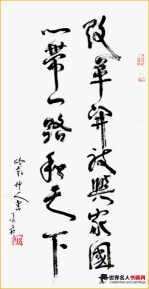 改革开放兴家国
一带一路和天下
岭南
世界名人书画网
Celebrities and painting